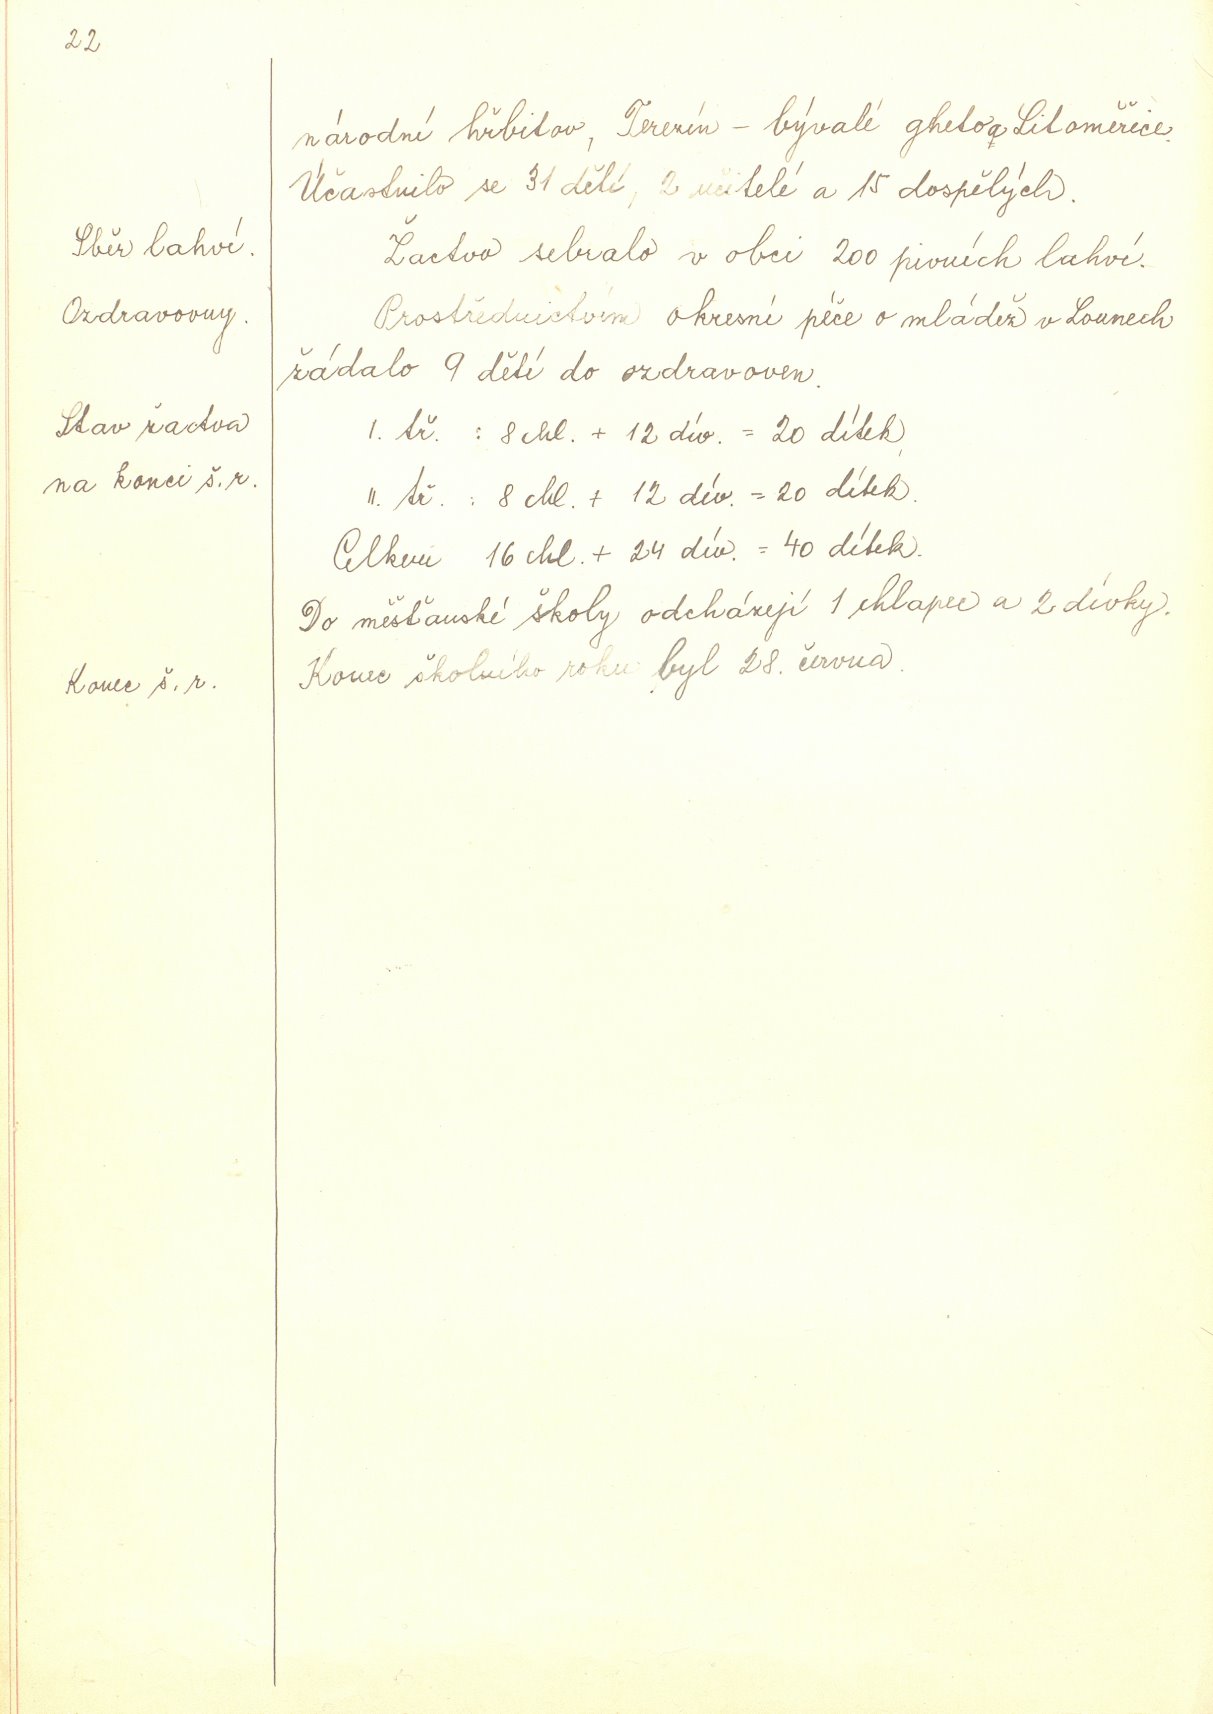 22
národní hřbitov, Terezín – bývalé gheto a Litoměřice.
Účastnilo se 31 dětí, 2 učitelé a 15 dospělých.
Sběr lahví.
Žactvo sebralo v obci 200 pivních lahví.
Ozdravovny.
Prostřednictvím okresní péče o mládež v Lounech
žádalo 9 dětí do ozdravoven.
Stav žactva
I. tř. : 8 chl. + 12 dív. = 20 dítek,
na konci š. r.
II. tř. : 8 chl. + 12 dív. = 20 dítek.
Celkem 16 chl. + 24 dív. = 40 dítek.
Do měšťanské školy odcházejí 1 chlapec a 2 dívky.
Konec š. r.
Konec školního roku byl 28. června.